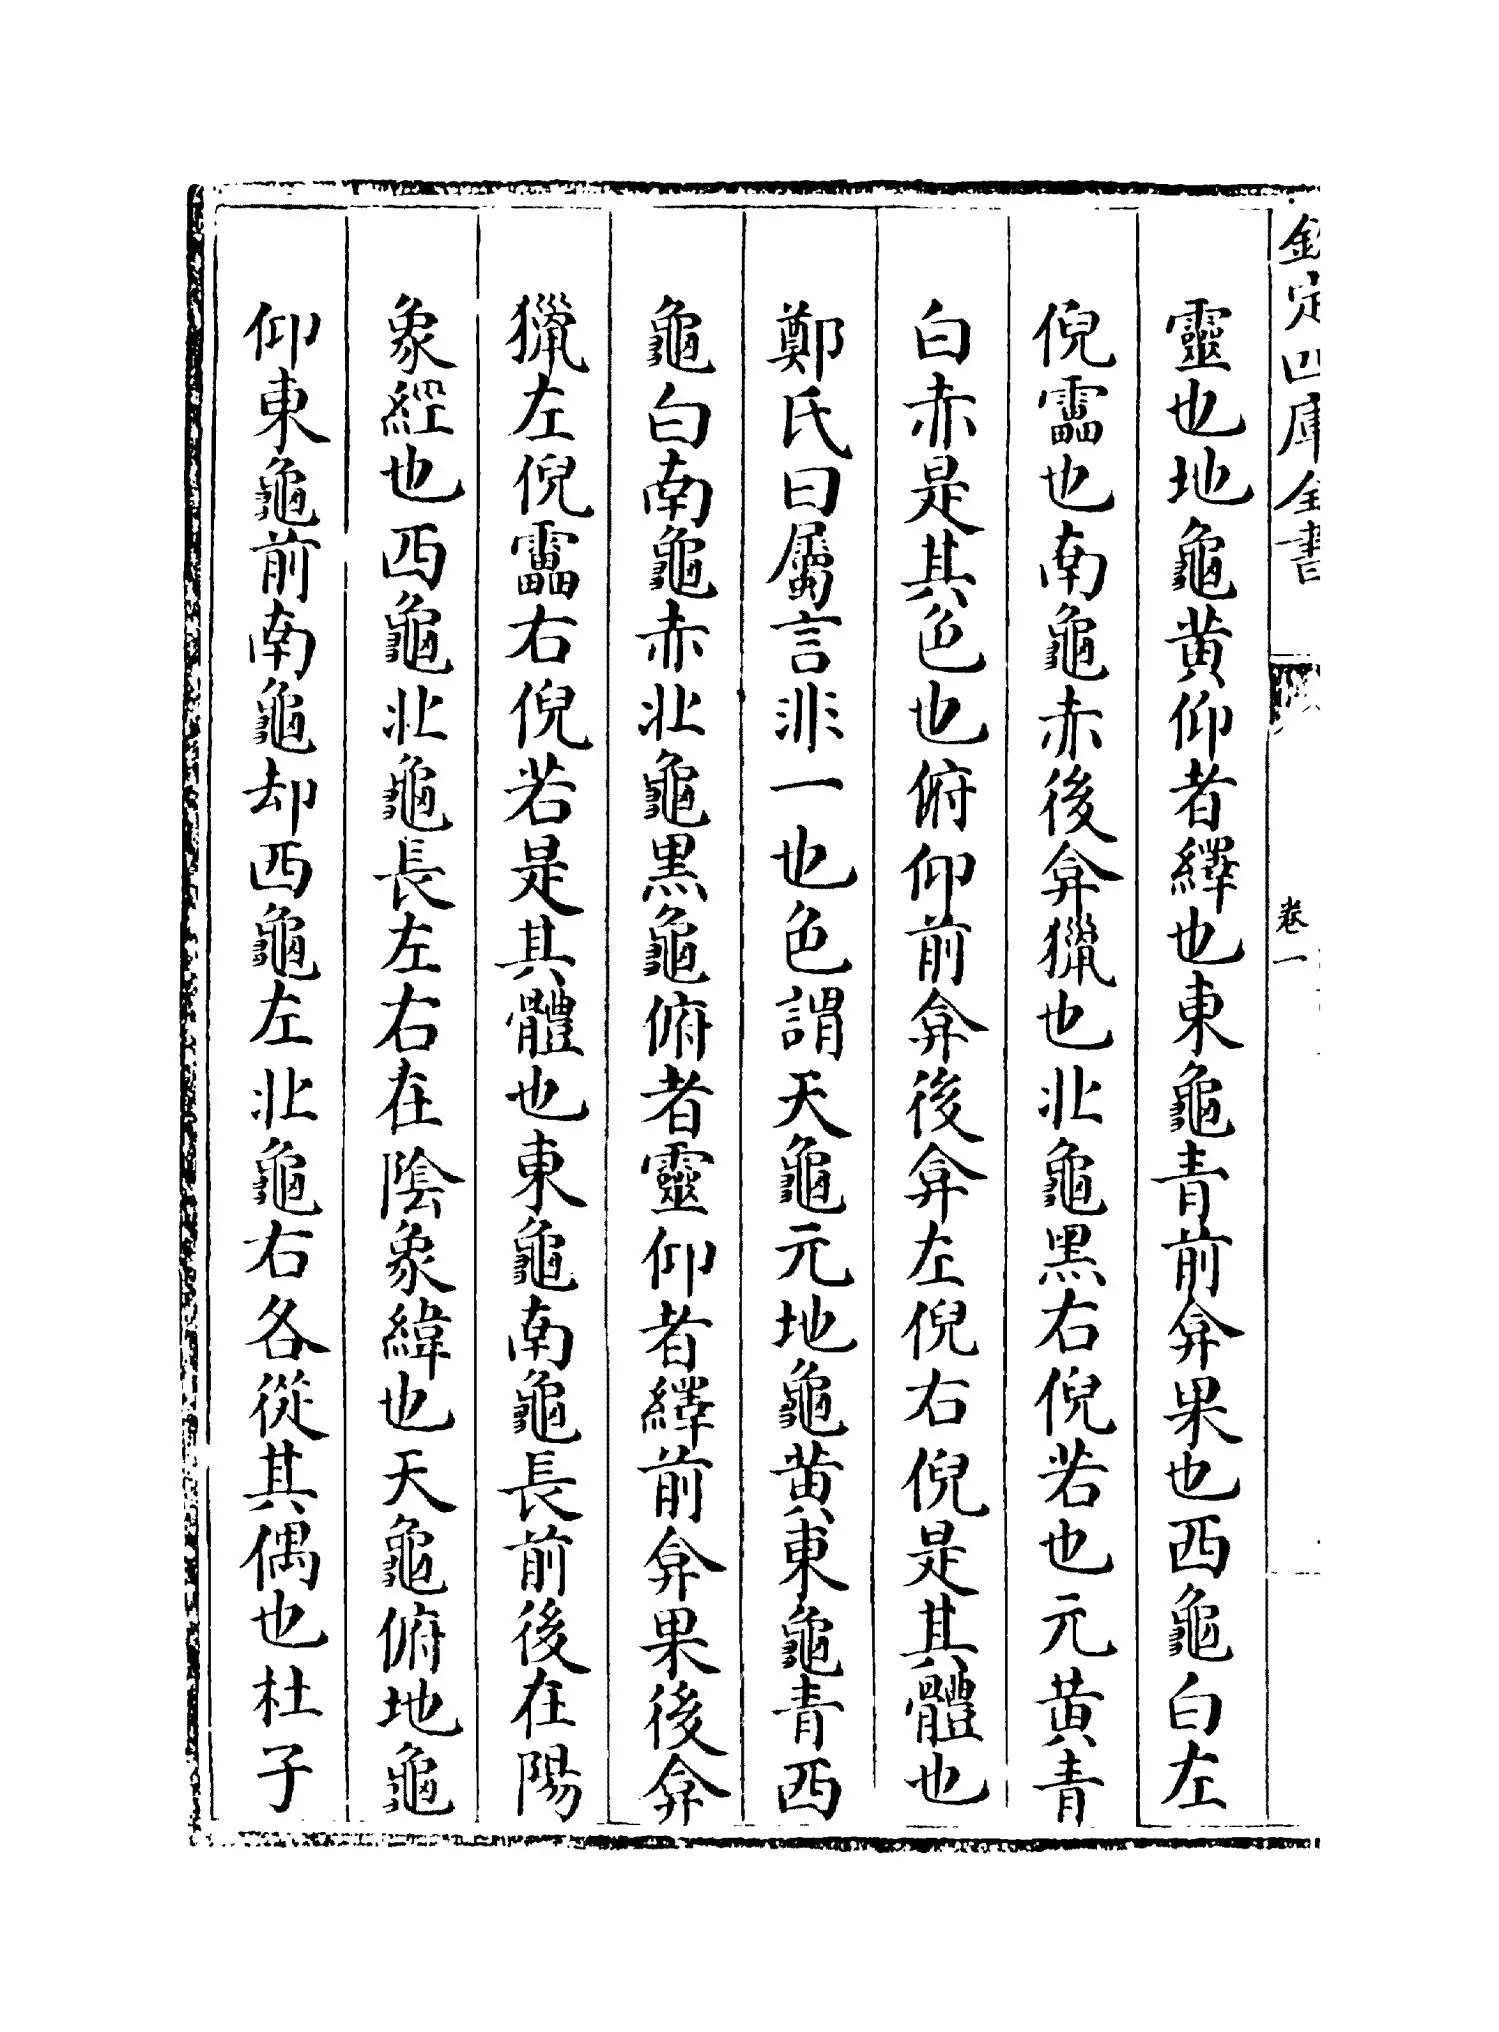 欽定四庫全書
卷一
靈也地龜黃仰者繹也東龜青前弇果也西龜白左
倪靁也南龜赤後弇獵也北龜黑右倪若也元黃青
白赤是其色也俯仰前弇後弇左倪右倪是其體也
鄭氏曰屬言非一也色謂天龜元地龜黃東龜青西
龜白南龜赤北龜黑龜俯者靈仰者繹前弇果後弇
獵左倪靁右倪若是其體也東龜南龜長前後在陽
象經也西龜北龜長左右在陰象緯也天龜俯地龜
仰東龜前南龜却西龜左北龜右各從其偶也杜子